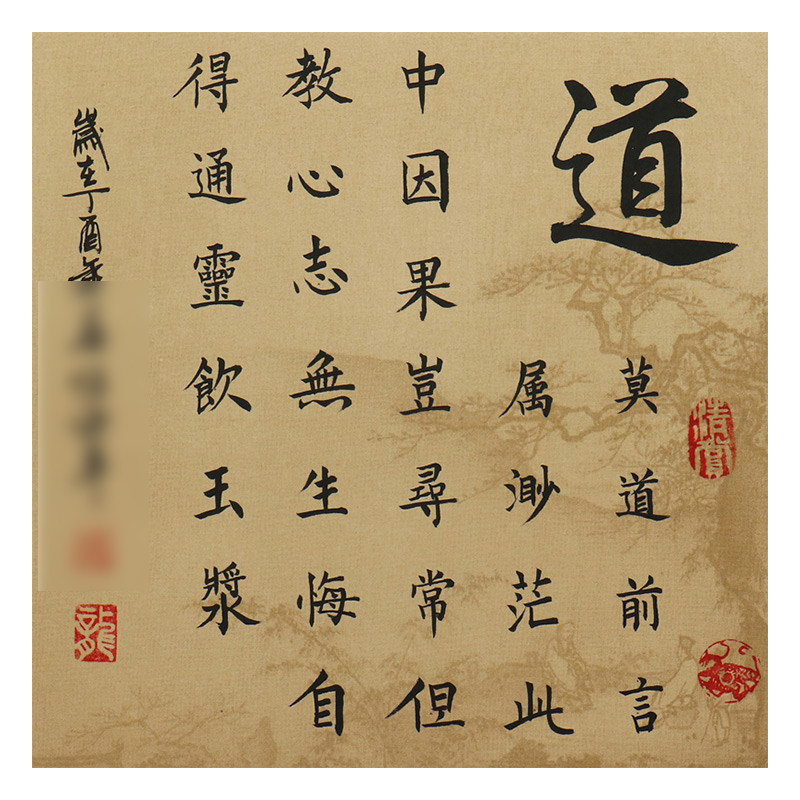 道
莫道前言
属渺茫此
中因果豈尋常但
教心志無生悔自
得通靈飲玉漿
歲在丁酉年
清賞
龍